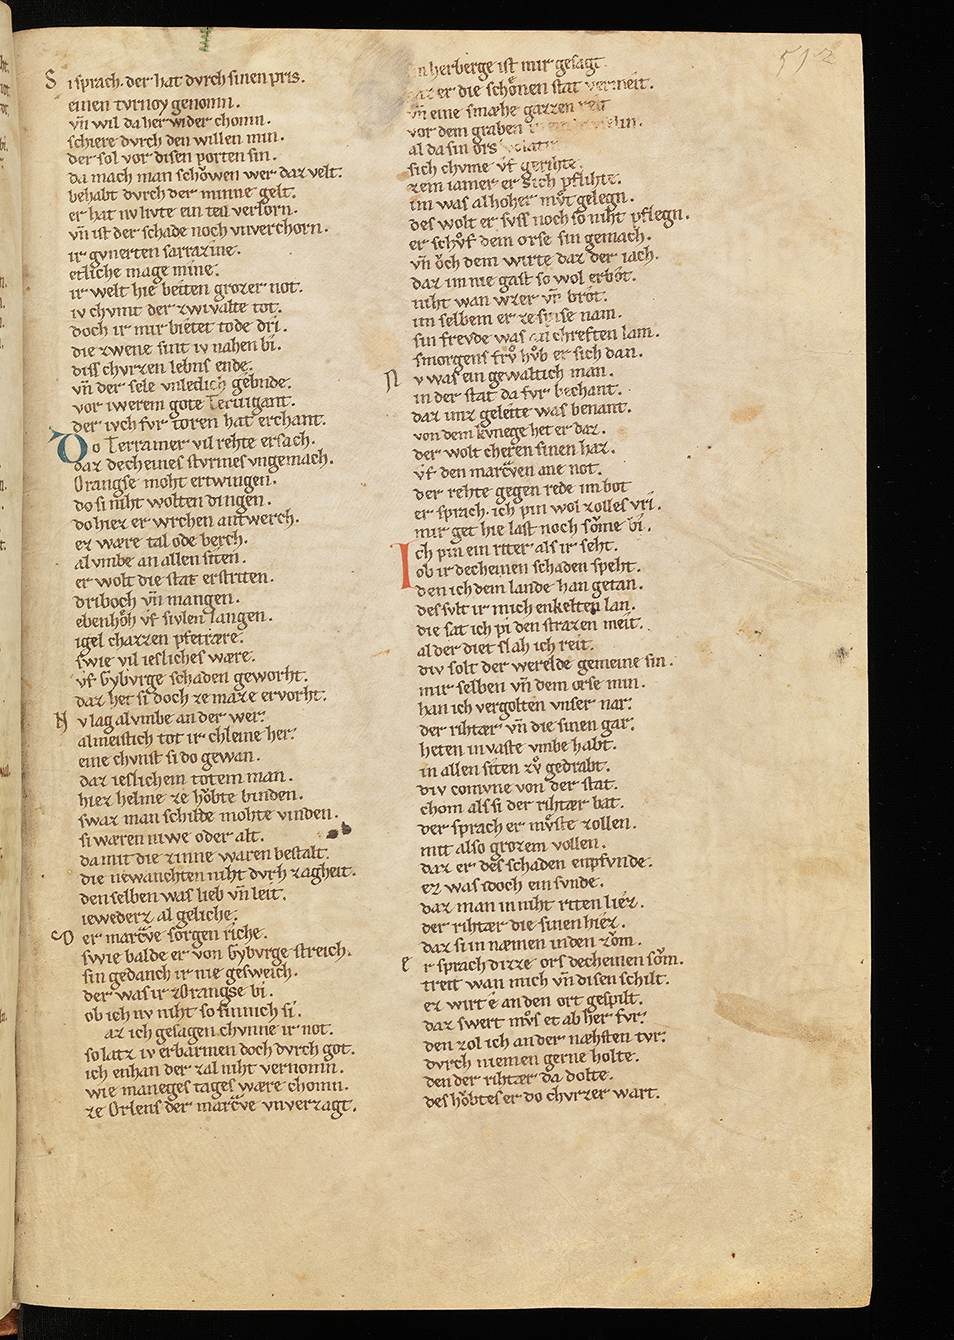 Si sprach. der hat dvrch sinen pris.
einen tvrnoy genomn.
vn̄ wil da her wider chomn.
schiere dvrch den willen min.
der sol vor disen porten sin.
da mach man schǒwen wer daz velt.
behabt dvrch der minne gelt.
er hat iv livte ein teil verlorn.
vn̄ ist der schade noch vnverchorn.
ir gvnerten sarrazine.
etliche mage mine.
ir welt hie beiten grozer not.
iv chvmt der zwivalte tot.
doch ir mir bietet tode dri.
die zwene sint iv nahen bi.
diss chvrzen lebns ende.
vn̄ der sele vnledich gebnde.
vor iwerem gote Tervigant.
der ivch fvr toren hat erchant.
Do Terramer vil rehte ersach.
daz decheines stvrmes vngemach.
Orangse moht ertwingen.
do si niht wolten dingen.
do hiez er wrchen antwerch.
ez wære tal ode berch.
al vmbe an allen siten.
er wolt die stat erstriten.
driboch vn̄ mangen.
ebenhǒh vf sivlen langen.
igel chazzen pfetrære.
swie vil iesliches wære.
vf Gybvrge schaden geworht.
daz het si doch ze maze ervorht.
Nv lag alvmbe an der wer.
almeistich tot ir chleine her.
eine chvnst si do gewan.
daz ieslichem totem man.
hiez helme ze hǒbte binden.
swaz man schilde mohte vinden.
si wæren niwe oder alt.
da mit die zinne waren bestalt.
die newanchten niht dvrh zagheit.
den selben was lieb vn̄ leit.
ieweder al geliche.
Der marcv̄e sorgen riche.
swie balde er von Gybvrge streich.
sin gedanch ir nie gesweich.
der was ir zOrangse bi.
ob ich nv niht so sinnich si.
az ich gesagen chvnne ir not.
so latz iv erbarmen doch dvrch got.
ich enhan der zal niht vernomn.
wie maneges tages wære chomn.
ze Orlens der marcv̄e vnverzagt.
512
in herberge ist mir gesagt.
daz er die schǒnen stat vermeit.
vn̄ eine smæhe gazzen reit
vor dem graben
al da sin ors
sich chvme vf gerihte.
zem iamer er sich pflihte.
im was al hoher mv̊t gelegn.
des wolt er svss noch so niht pflegn.
er schv̊f dem orse sin gemach.
vn̄ ǒch dem wirte daz der iach.
daz im nie gast so wol erbot.
niht wan wzer vn̄ brot.
im selbem er ze spise nam.
sin frevde was an chreften lam.
smorgens frv̊ hv̊b er sich dan.
Nv was ein gewaltich man.
in der stat da fvr bechant.
daz imz geleite was benant.
von dem kvnege het er daz.
der wolt cheren sinen haz.
vf den marcv̄en ane not.
der rehte gegen rede im bot
er sprach. ich pin wol zolles vri.
mir get hie last noch sǒme bi.
Ich pin ein riter als ir seht.
ob ir decheinen schaden speht.
den ich dem lande han getan.
des svlt ir mich enkelten lan.
die sat ich pi den strazen meit.
al der diet slah ich reit.
div solt der werelde gemeine sin.
mir selben vn̄ dem orse min.
han ich vergolten vnser nar.
der rihtær vn̄ die sinen gar.
heten in vaste vmbe habt.
in allen siten zv̊ gedrabt.
div comvne von der stat.
chom als si der rihtær bat.
der sprach er mv̊ste zollen.
mit also grozem vollen.
daz er des schaden enpfvnde.
ez was idoch ein svnde.
daz man in niht riten liez.
der rihtær die sinen hiez.
daz si in næmen in den zǒm.
er sprach dizze ors decheinen sǒm.
treit wan mich vn̄ disen schilt.
ez wirt e an den ort gespilt.
daz swert mv̊s et ab her fvr.
den zol ich an der næhsten tvr.
dvrch niemen gerne holte.
den der rihtær da dolte.
des hǒbtes er do chvrzer wart.